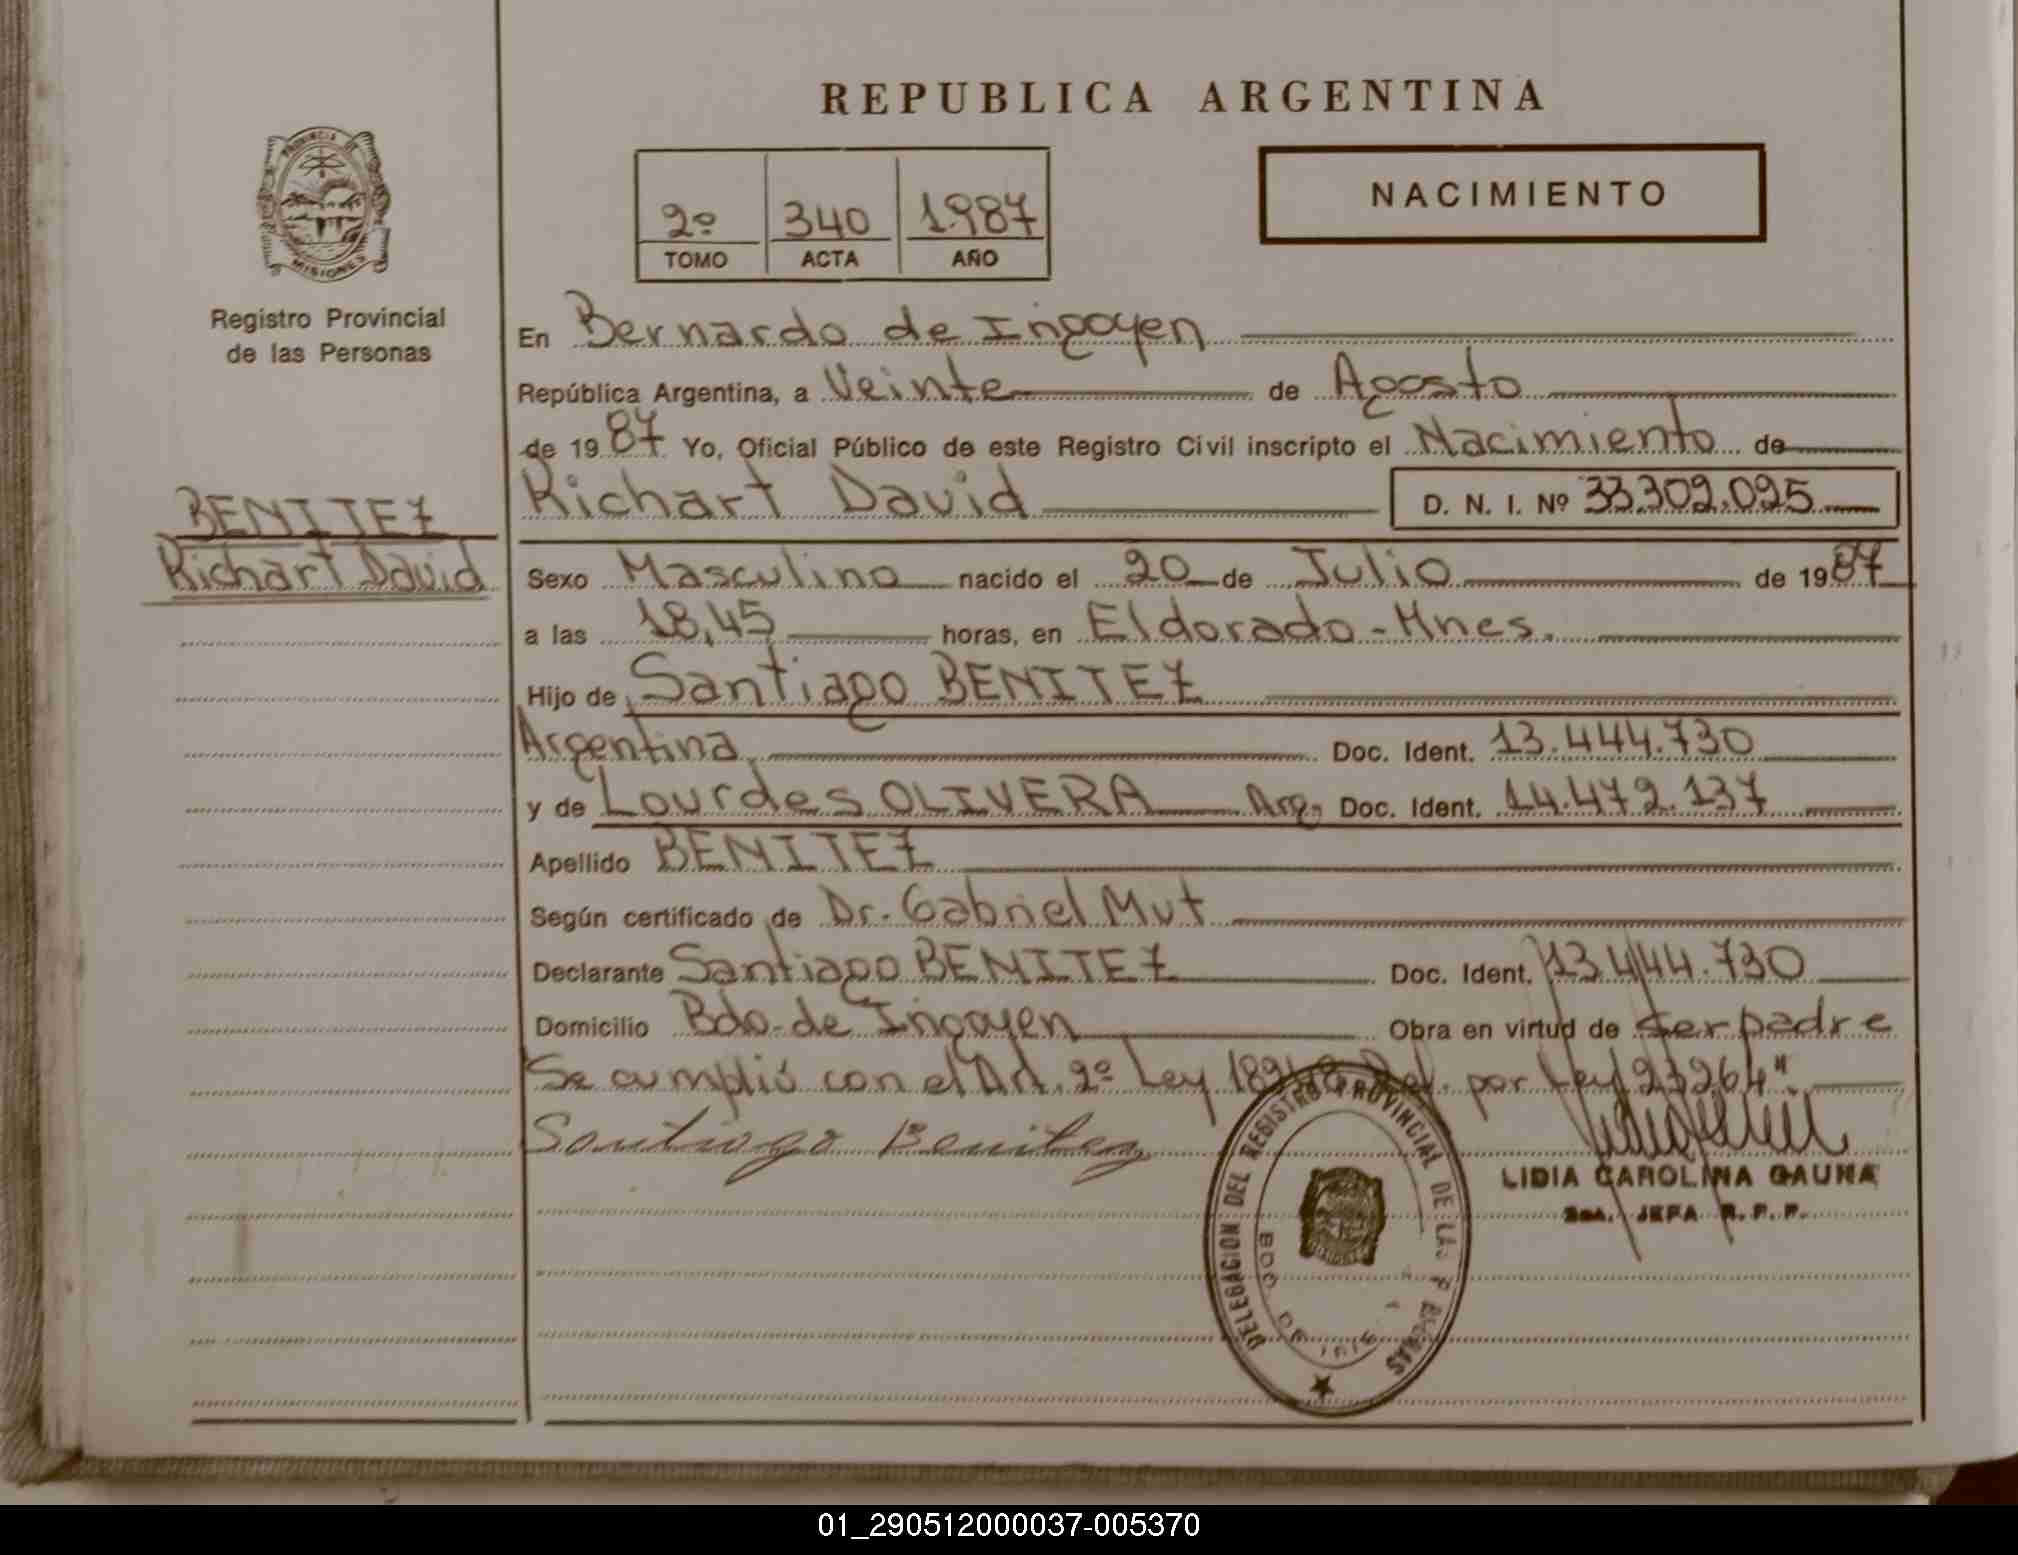 REPUBLICA ARGENTINA
PROVINCIA DE MISIONES
Registro Provincial
de las Personas
2º 340 1.987
TOMO ACTA AÑO
NACIMIENTO
En Bernardo de Irigoyen
República Argentina, a Veinte de Agosto
de 1987 Yo, Oficial Público de este Registro Civil inscripto el Nacimiento de
BENITEZ
Richart David
Richart David D. N. I. Nº 33.302.025
Sexo Masculino nacido el 20 de Julio de 1987
a las 18,45 horas, en Eldorado - Mnes.
Hijo de Santiago BENITEZ
Argentina Doc. Ident. 13.444.730
y de Lourdes OLIVERA Arg. Doc. Ident. 14.472.137
Apellido BENITEZ
Según certificado de Dr. Gabriel Mut
Declarante Santiago BENITEZ Doc. Ident. 13.444.730
Domicilio Bdo. de Irigoyen Obra en virtud de ser padre
Se cumplió con el Art. 2º Ley por Ley 23264".
Santiago Benitez
LIDIA CAROLINA GAUNA
JEFA R. P. P.
DELEGACION DEL REGISTRO PROVINCIAL DE LAS PERSONAS
BDO. DE
01_290512000037-005370